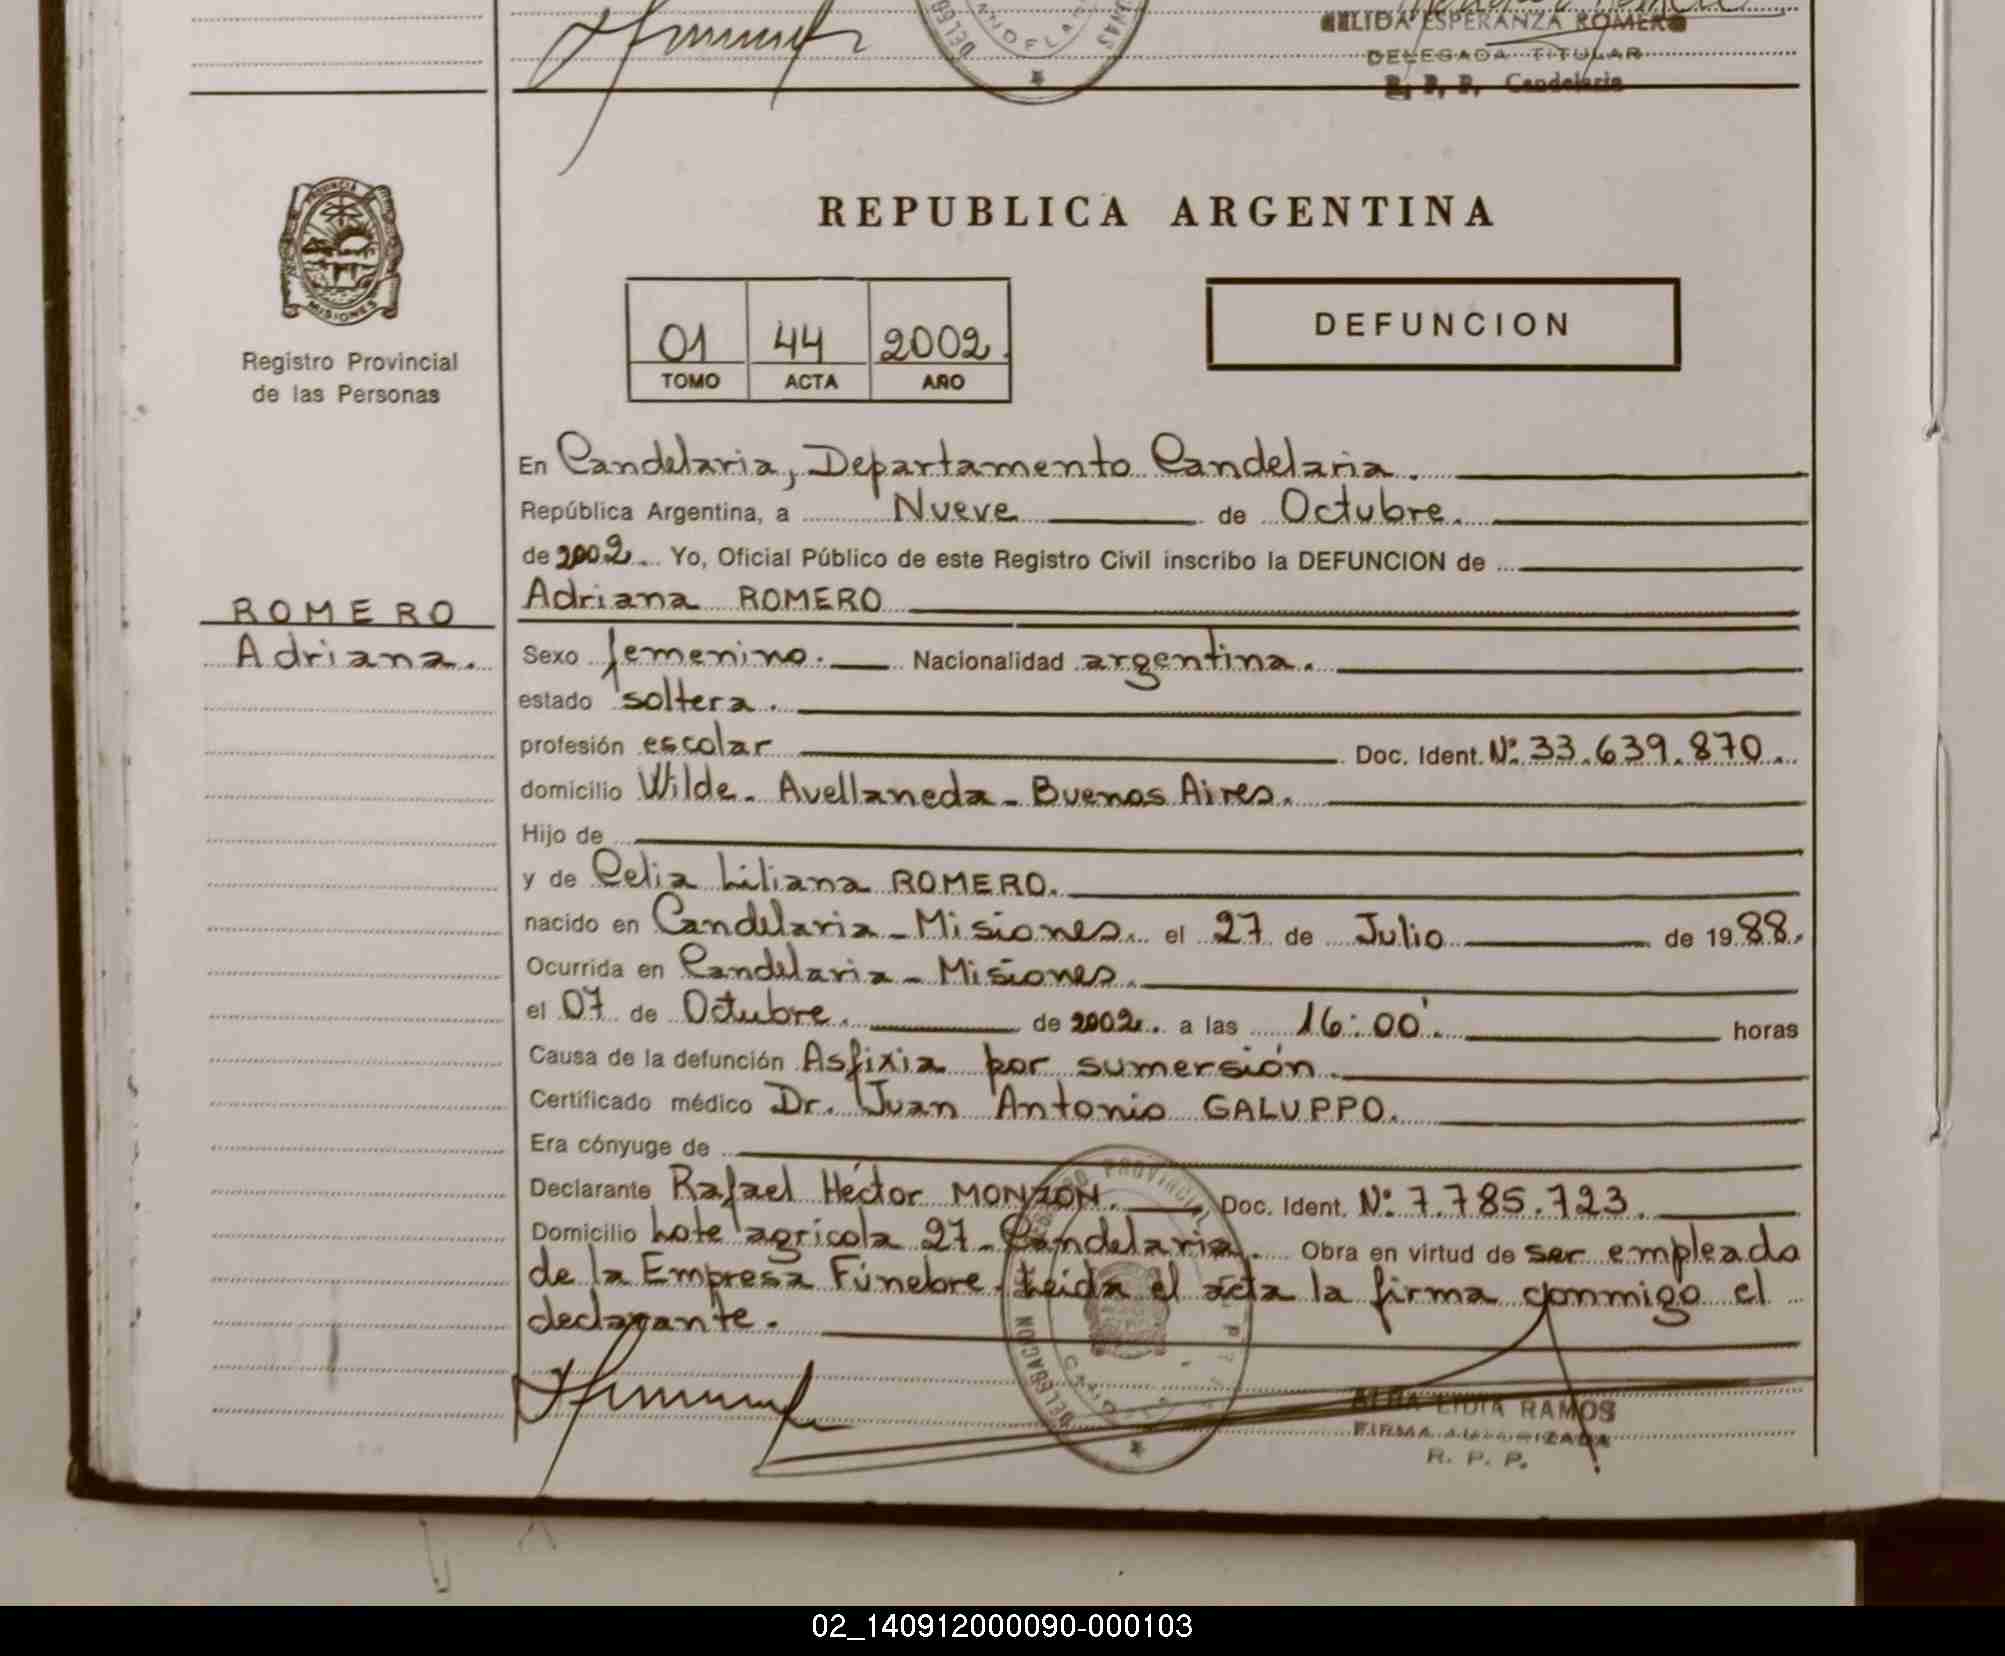 ELIDA ESPERANZA ROMERO
DELEGADA TITULAR
R. P. P. Candelaria
MISIONES
Registro Provincial
de las Personas
REPUBLICA ARGENTINA
01 44 2002
TOMO ACTA AÑO
DEFUNCION
En Candelaria, Departamento Candelaria.
República Argentina, a Nueve de Octubre.
de 2002. Yo, Oficial Público de este Registro Civil inscribo la DEFUNCION de
Adriana ROMERO
ROMERO
Adriana.
Sexo femenino. Nacionalidad argentina.
estado soltera.
profesión escolar Doc. Ident. Nº 33.639.870.
domicilio Wilde - Avellaneda - Buenos Aires.
Hijo de
y de Celia Liliana ROMERO.
nacido en Candelaria - Misiones. el 27 de Julio de 1988.
Ocurrida en Candelaria - Misiones.
el 07 de Octubre. de 2002. a las 16:00'. horas
Causa de la defunción Asfixia por sumersión.
Certificado médico Dr. Juan Antonio GALUPPO.
Era cónyuge de
Declarante Rafael Héctor MONZON. Doc. Ident. Nº 7.785.723.
Domicilio Lote agrícola 27 - Candelaria. Obra en virtud de ser empleado
de la Empresa Fúnebre. Leída el acta la firma conmigo el
declarante.
ALBA LIDIA RAMOS
FIRMA AUTORIZADA
R. P. P.
02_140912000090-000103